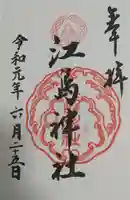 奉拝
江島神社
令和元年六月二十五日